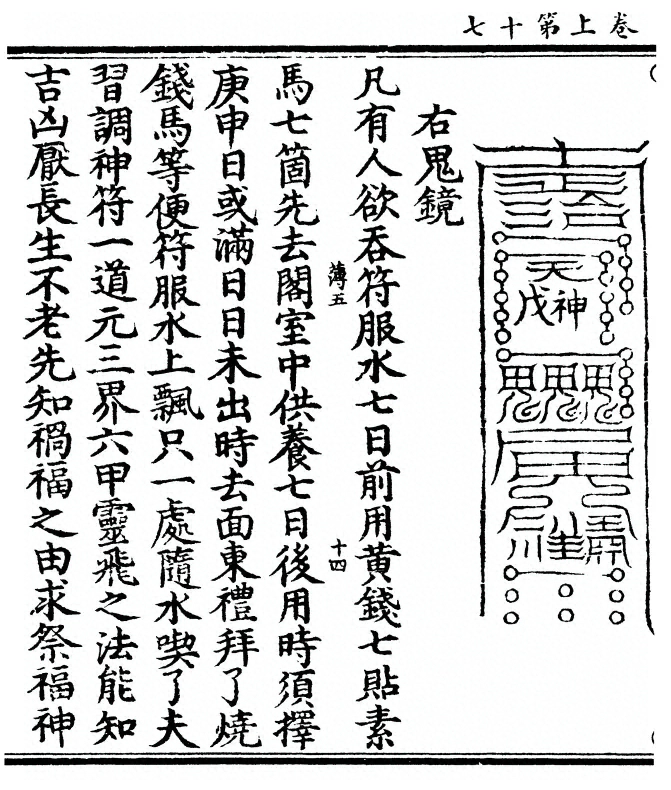 卷上第十七
天
神戊
右鬼鏡
凡有人欲吞符服水七日前用黄錢七貼素
馬七箇先去閣室中供養七日後用時須擇
薄五
十四
庚申日或滿日日未出時去面東禮拜了燒
錢馬等便符服水上飄只一處隨水喫了夫
習調神符一道元三界六甲靈飛之法能知
吉凶厭長生不老先知禍福之由求祭福神